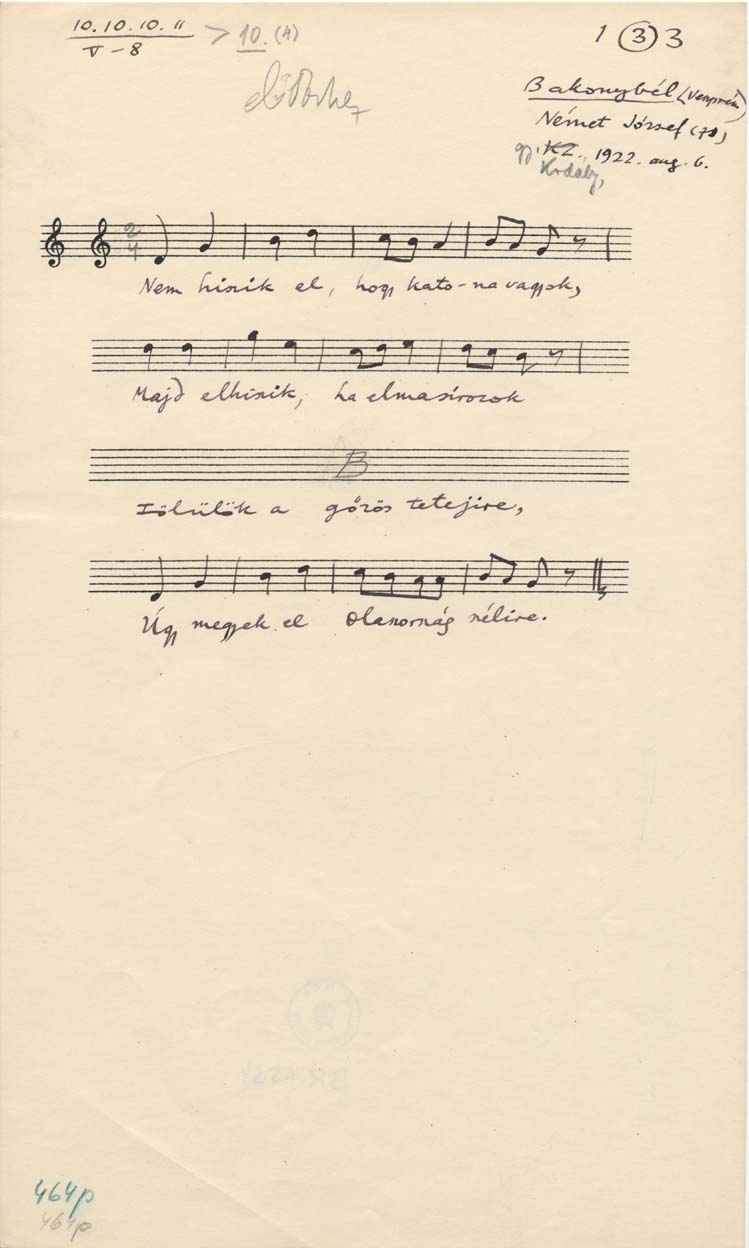 10. 10. 10. 11
V - 8
> 10. (4)
1 3 3
Bakonybél (Veszprém)
Német József (70)
gy. KZ. 1922. aug. 6.
Kodály,
2
4
Nem hiszik el, hogy kato-na vagyok,
Majd elhiszik, ha elmasírozok
B
Fölülök a gőzös tetejire,
Úgy megyek el Olaszország szélire.
464p
464p